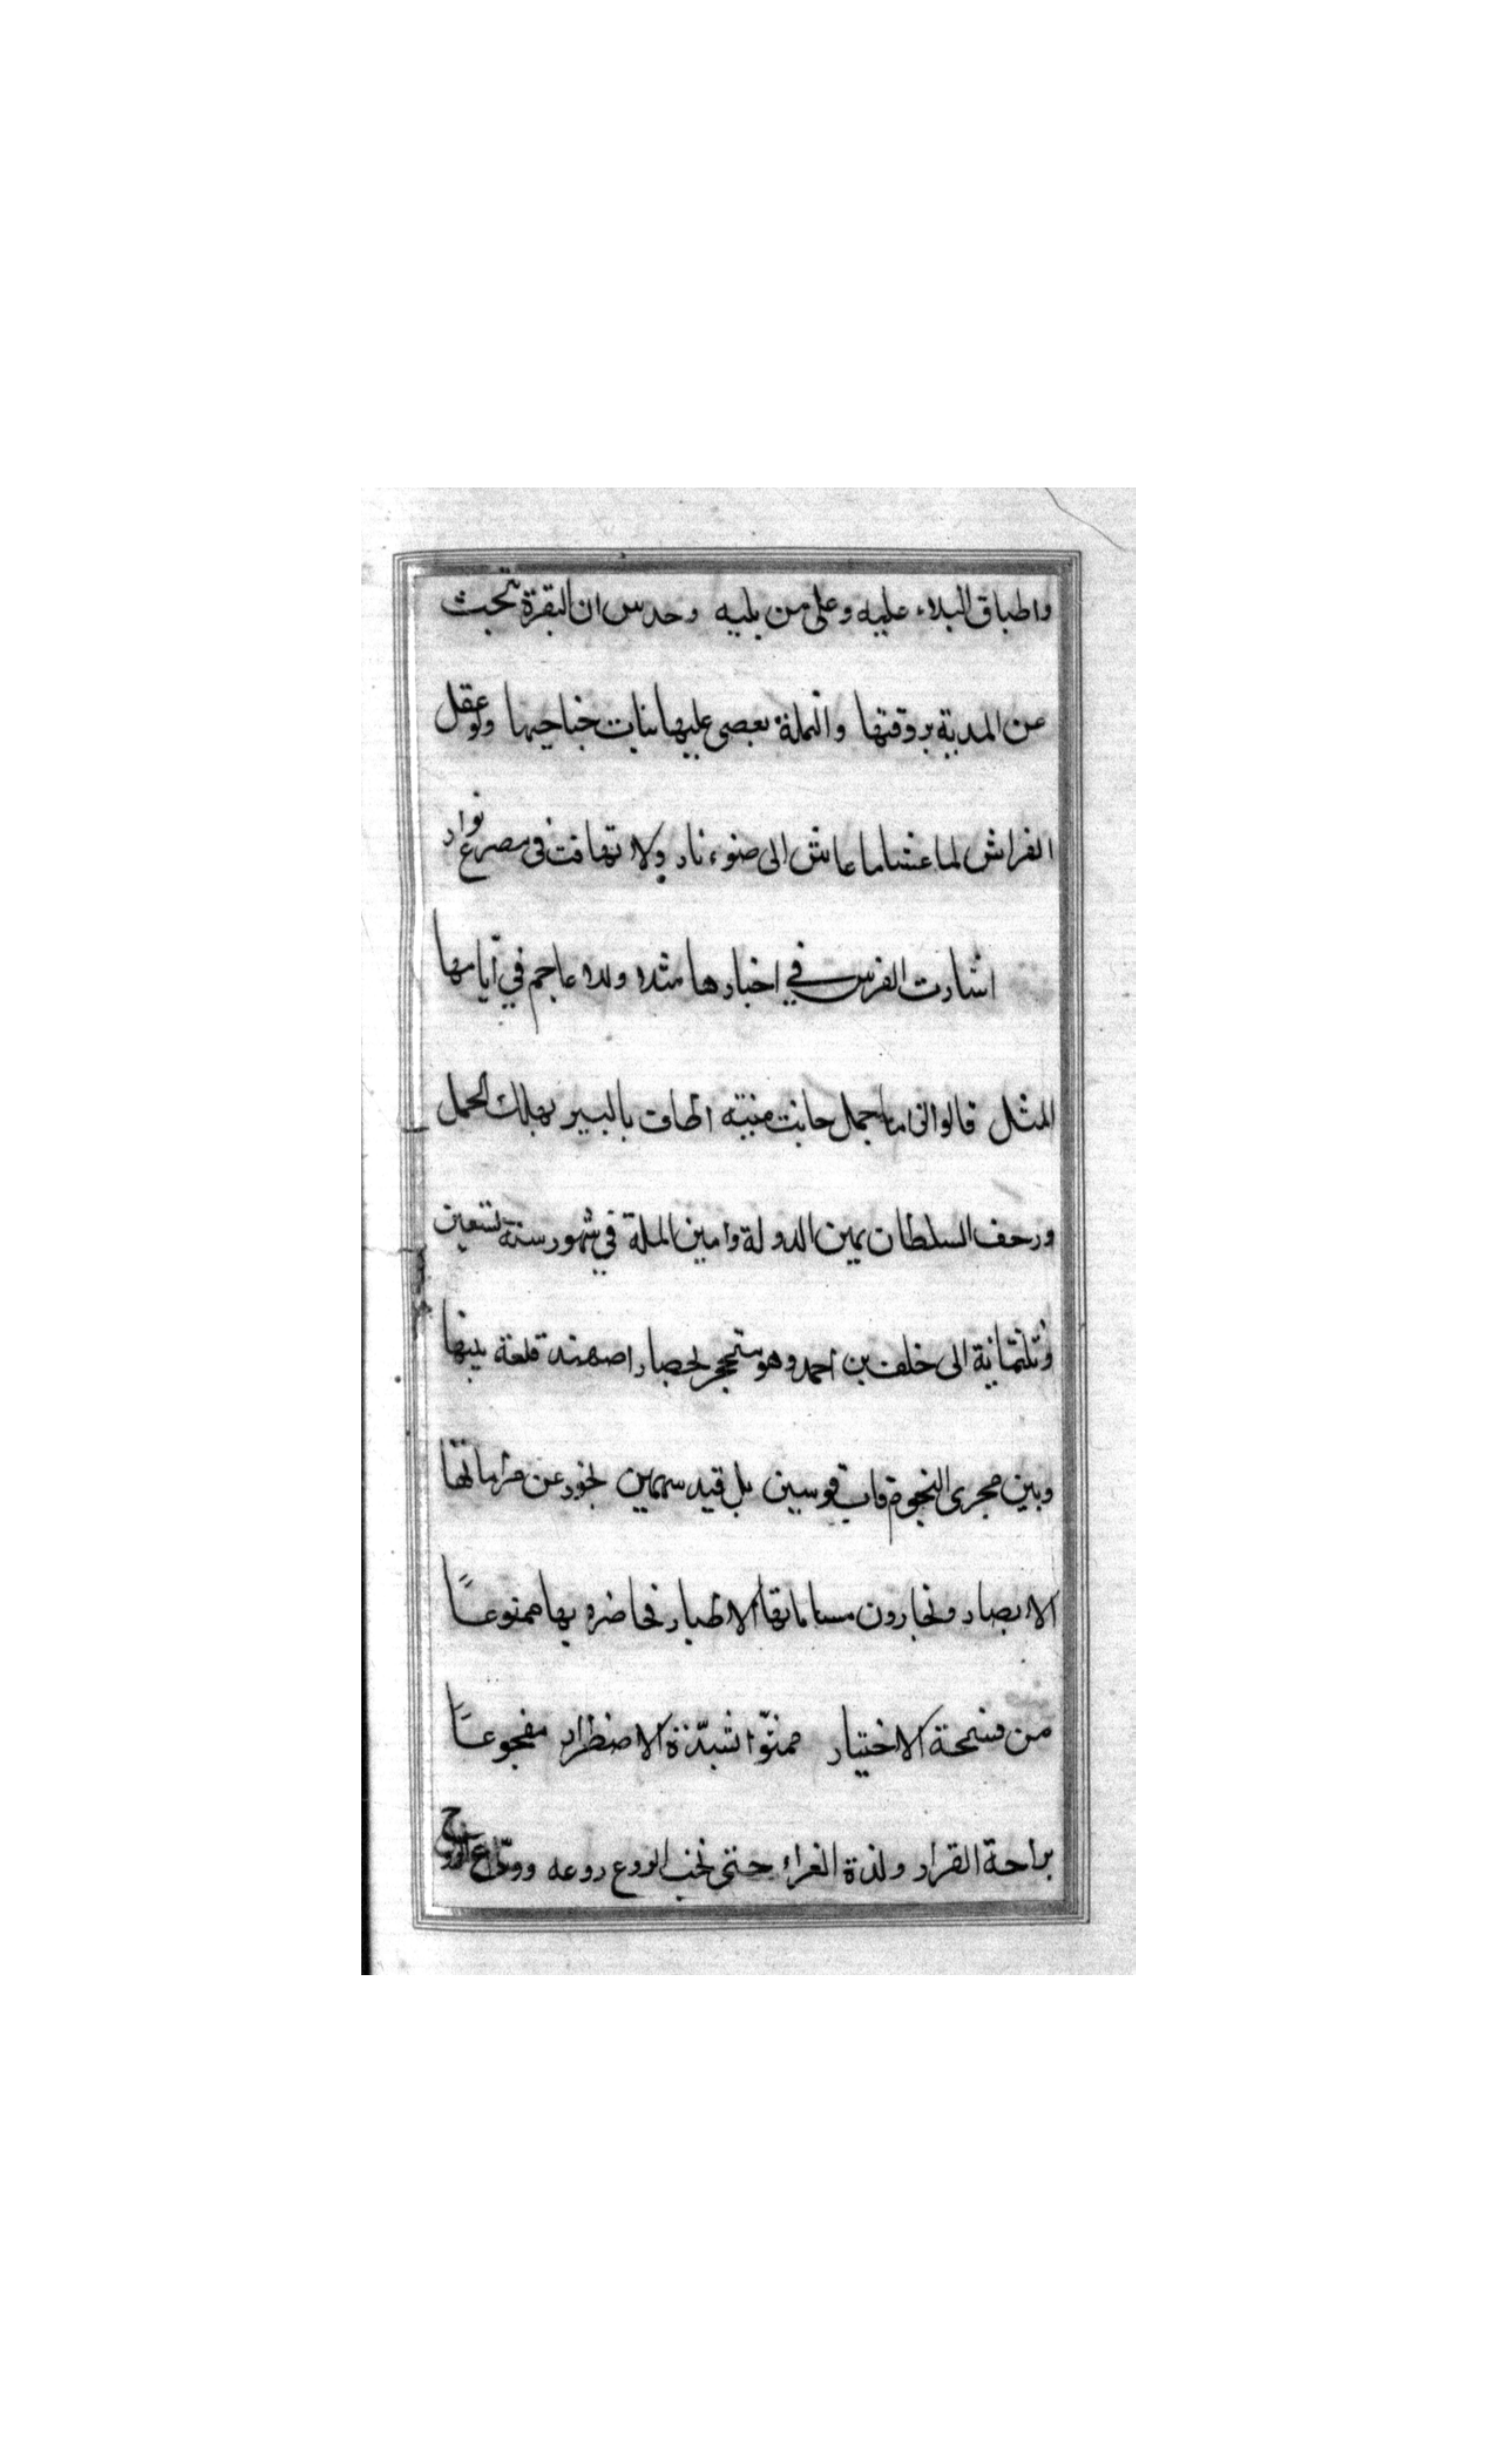 واطباق البلاء عليه وعلى من يليه وحدس ان البقرة تبحث
عن المدية بروقتها والنملة يعصى عليها بنات جناحيها ولو عقل
الفراش لما عشا ما عاش الى ضوء نار ولا تهافت فى مصرع بوار
اشارت الفرس في اخبارها مثلا وللاعاجم في أيامها
المثل قالوا اذا ما جمل حانت منيته اطاف بالبير يهلك الجمل
وزحف السلطان يمين الدولة وامين الملة في شهور سنة تسعين
وثلثمائة الى خلف بن احمد وهو متحجر لحصار اصهبذ قلعة بينها
وبين مجرى النجوم قاب قوسين بل قيد سهمين
الابصار الاطيار فحاضره بها ممنوعاً
من فسحة الاختيار ممنوّا بشدّة الاضطرار مفجوعاً
براحة القرار ولذة الغرار حتى نخب الروع روعه